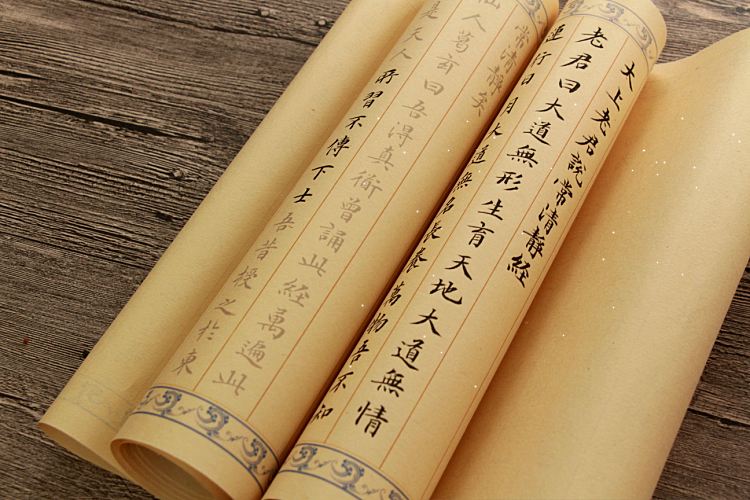 太上老君說常清靜經
老君曰大道無形生育天地大道無情
運行日月大道無名長養萬物吾不知
常清靜矣
仙人葛玄曰吾得真衜曾誦此經萬遍此
是天人所習不傳下士吾昔授之於東